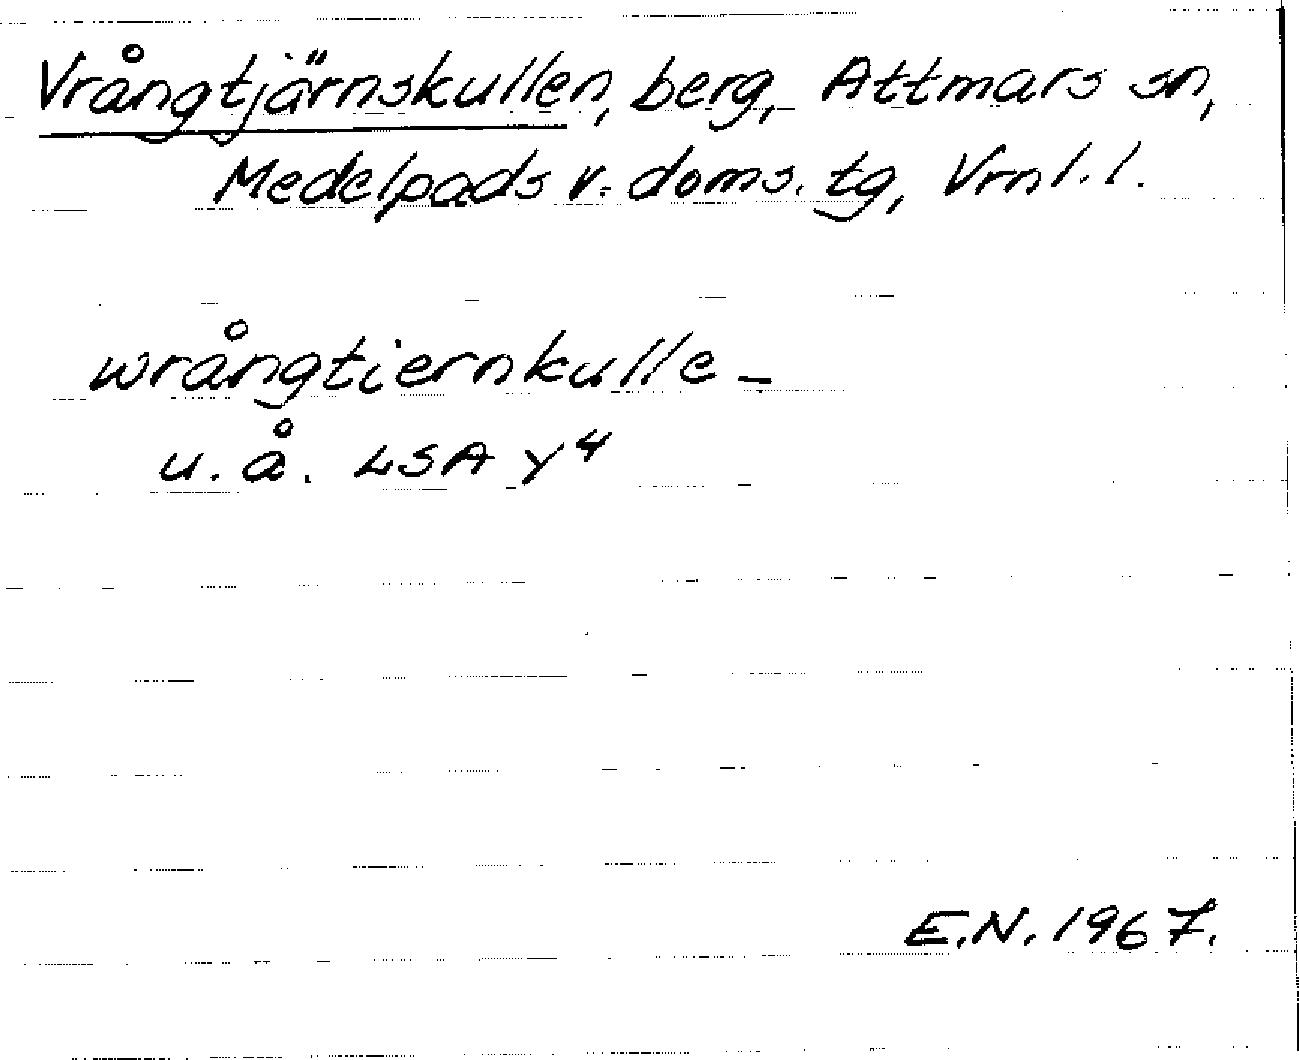 Vrångtjärnskullen, berg, Attmars sn,
Medelpads v. doms. tg, Vrnl. l.
wrångtiernkulle –
u. å. LSA Y4
E.N. 1967.